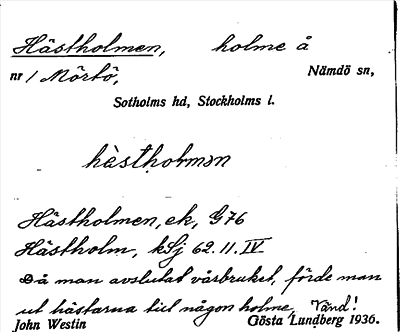 Hästholmen, holme å
nr 1 Mörtö, Nämdö sn,
Sotholms hd, Stockholms l.
hästhormən
Hästholmen, ek, G76
Hästholm, kSj 62.11.IV
Då man avslutat vårbruket, förde man
ut hästarna till någon holme. Vänd!
John Westin Gösta Lundberg 1936.